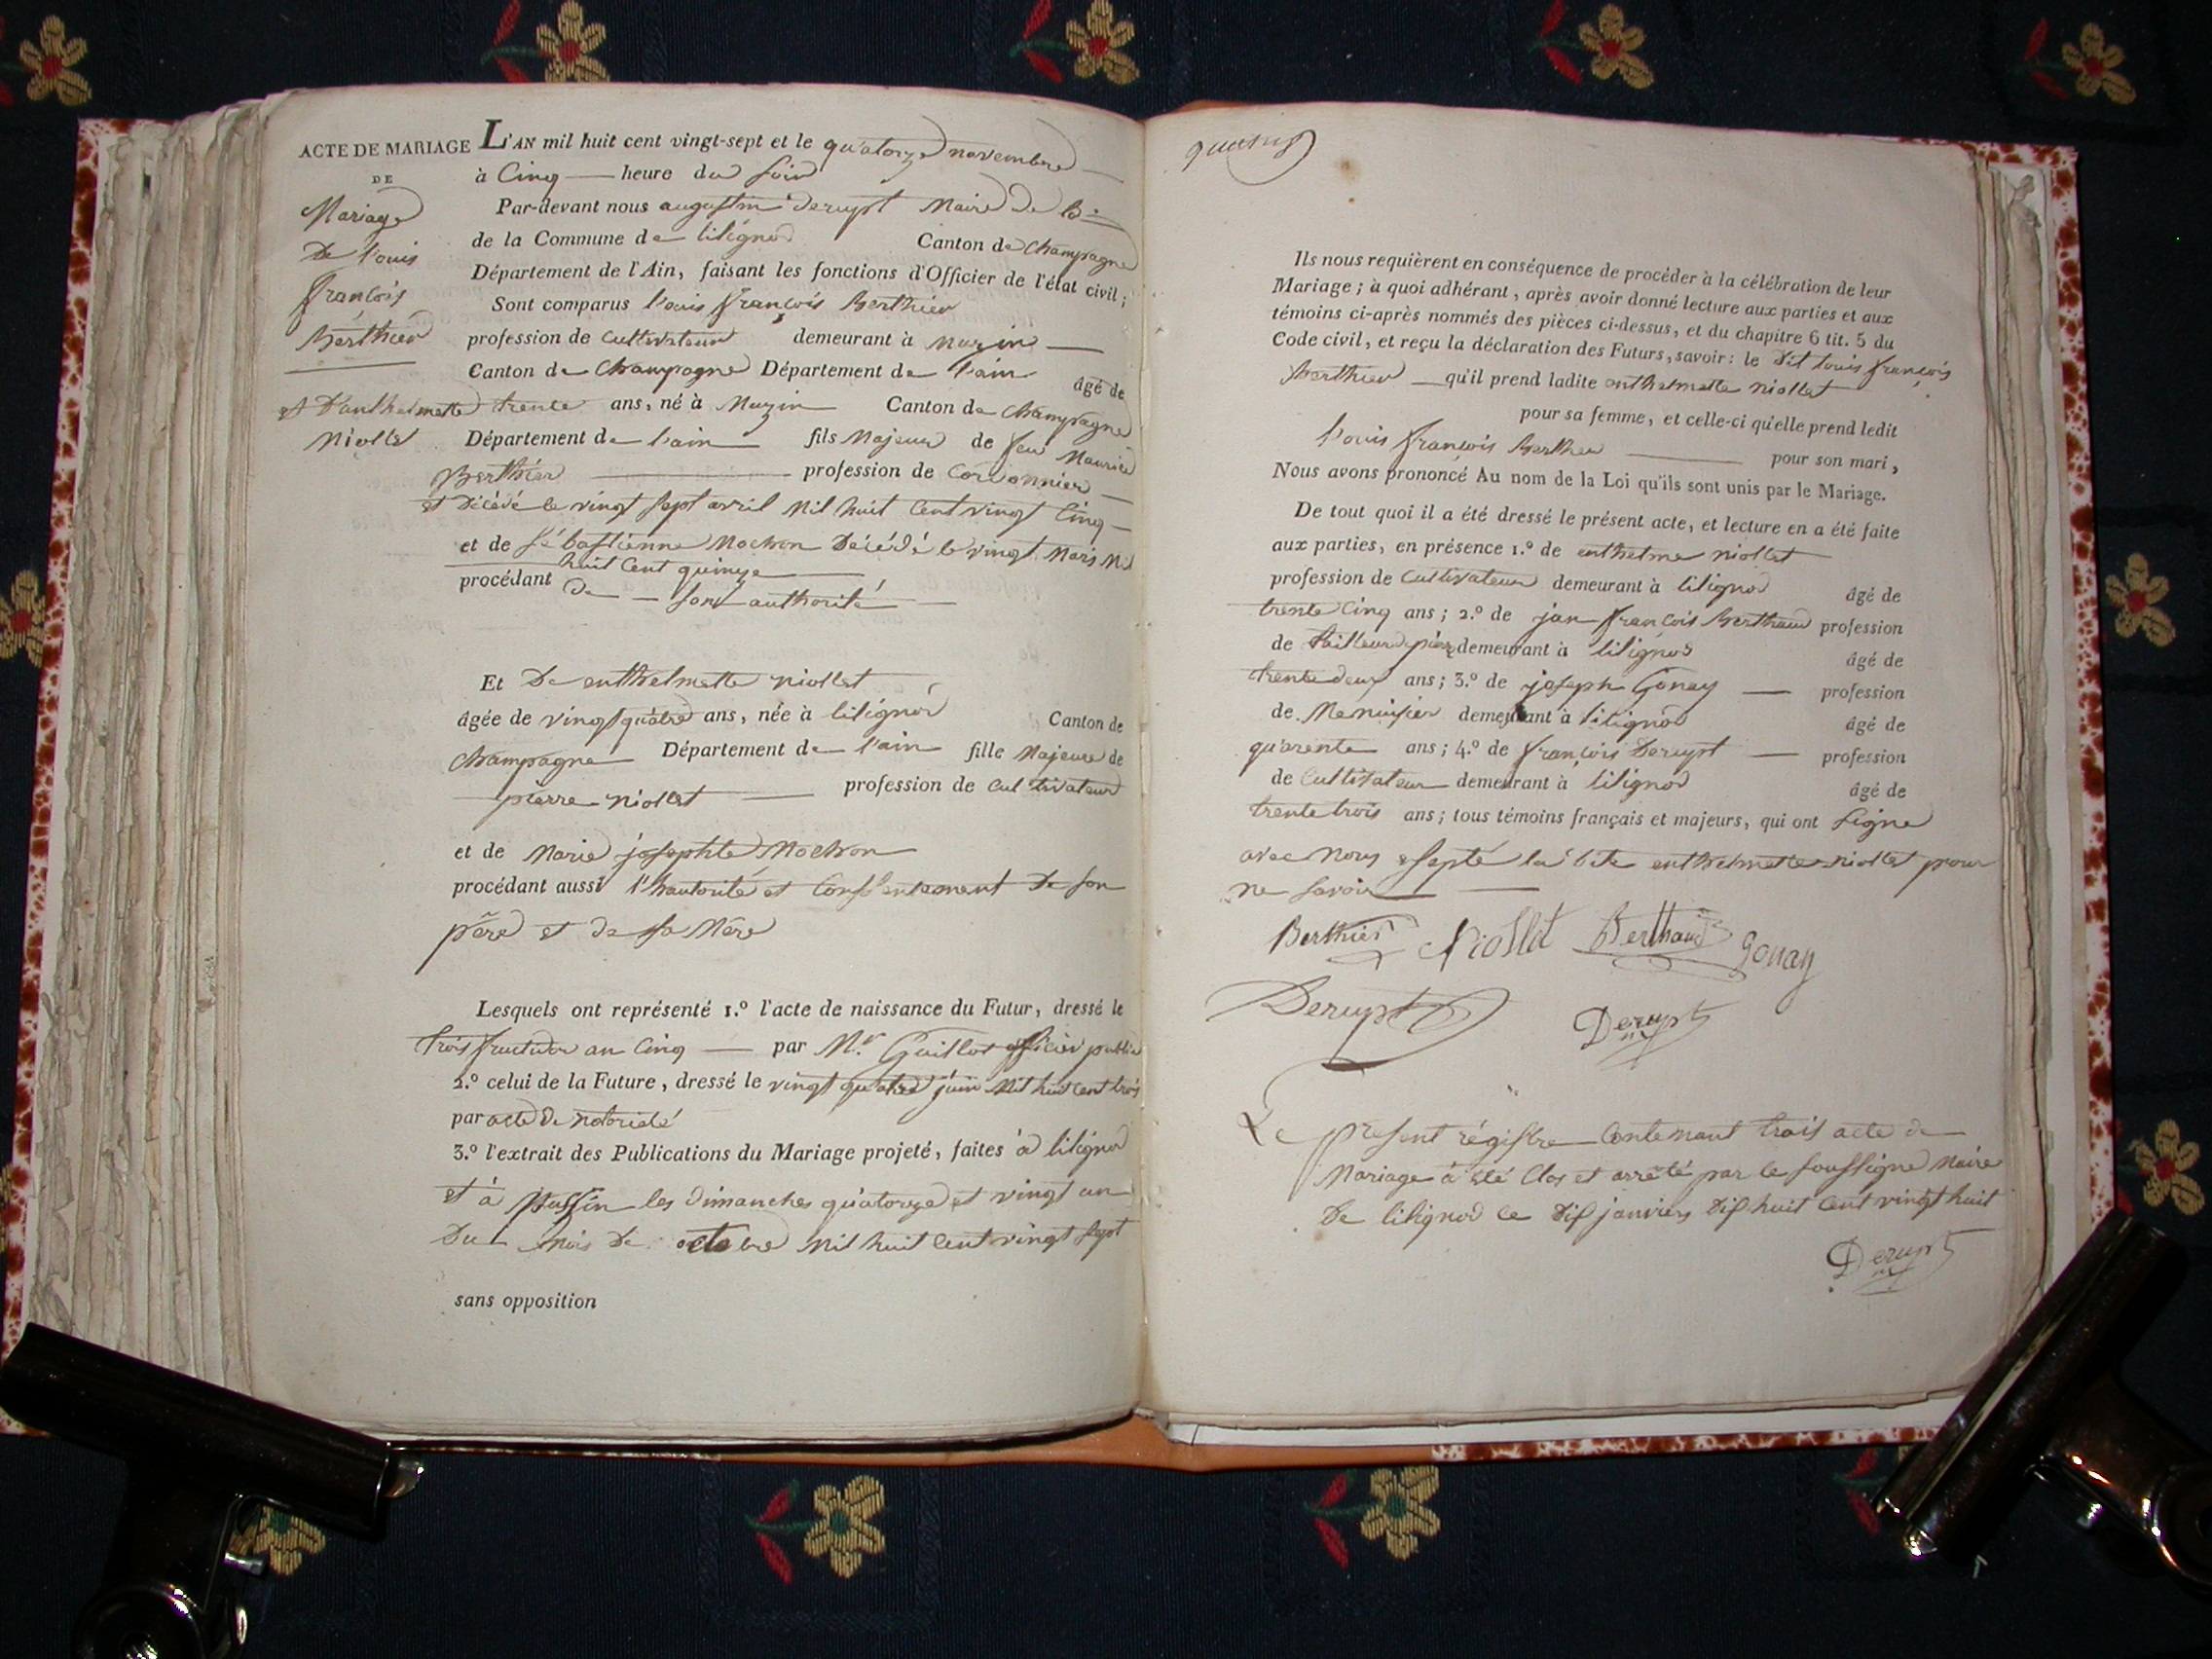 ACTE DE MARIAGE
DE
Mariage
De louis
françois
Berthier
et D'anthelmette
Niollet
L'AN mil huit cent vingt-sept et le quatorze novembre
à Cinq heure du soir
Par-devant nous augustin derupt Maire de
de la Commune de lilignod Canton de Champagne
Département de l'Ain, faisant les fonctions d'Officier de l'état civil;
Sont comparus louis françois Berthier
profession de Cultivateur demeurant à Muzin
Canton de Champagne Département de l'ain âgé de
trente ans, né à Muzin Canton de Champagne
Département de l'ain fils Majeur de feu Maurice
Berthier profession de Cordonnier
et décédé le vingt sept avril Mil huit Cent vingt Cinq
et de Sébastienne Mochon Décédé le vingt Mars Mil
huit Cent quinze
procédant de son authorité
Et De enthelmette niollet
âgée de vingt quatre ans, née à lilignod Canton de
Champagne Département de l'ain fille Majeure de
pierre niollet profession de Cultivateur
et de Marie josephte Mochon
procédant aussi l'hautorité et Consentement De son
père et de sa Mère
Lesquels ont représenté 1.° l'acte de naissance du Futur, dressé le
trois fructidor an Cinq par M.r Guillot officier public
2.° celui de la Future, dressé le vingt quatre juin Mil huit cent trois
par acte de notoriété
3.° l'extrait des Publications du Mariage projeté, faites à lilignod
et à les dimanches quatorze et vingt un
Du Mois De octobre Mil huit Cent vingt sept
sans opposition
Ils nous requièrent en conséquence de procéder à la célébration de leur
Mariage; à quoi adhérant, après avoir donné lecture aux parties et aux
témoins ci-après nommés des pièces ci-dessus, et du chapitre 6 tit. 5 du
Code civil, et reçu la déclaration des Futurs, savoir: le dit louis françois
Berthier qu'il prend ladite enthelmette niollet
pour sa femme, et celle-ci qu'elle prend ledit
louis françois Berthier pour son mari,
Nous avons prononcé Au nom de la Loi qu'ils sont unis par le Mariage.
De tout quoi il a été dressé le présent acte, et lecture en a été faite
aux parties, en présence 1.° de enthelme niollet
profession de Cultivateur demeurant à lilignod âgé de
trente Cinq ans; 2.° de jan françois Berthaud profession
de tailleur de demeurant à lilignod âgé de
trente deux ans; 3.° de joseph Gonay profession
de Menuisier demeurant à lilignod âgé de
quarente ans; 4.° de françois Derupt profession
de Cultivateur demeurant à lilignod âgé de
trente trois ans; tous témoins français et majeurs, qui ont signé
avec Nous esepté la dite enthelmette niollet pour
ne savoir
Berthier Niollet Berthaud gonay
Derupt Derupt
Le présent régistre Contenant trois acte de
Mariage à été Clos et arrêté par le soussigné Maire
De lilignod ce dix janvier dix huit Cent vingt huit
Derupt